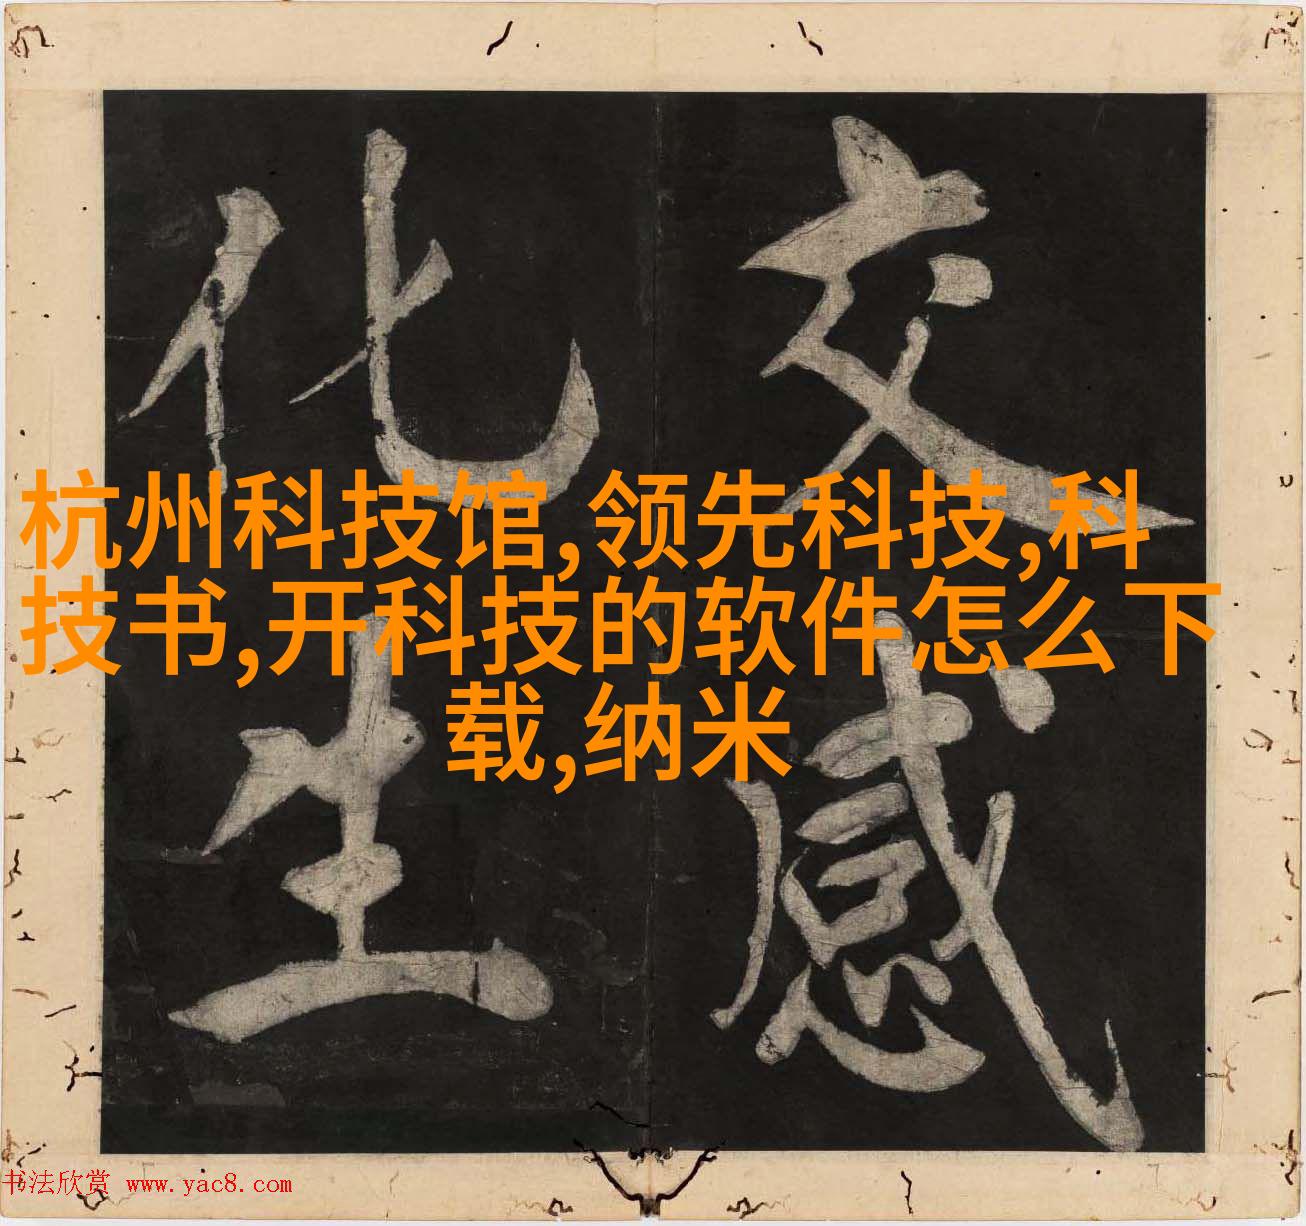 交感
化生
杭州科技馆,领先科技,科
技书,开科技的软件怎么下
载,纳米
书法欣赏 www.yac8.com